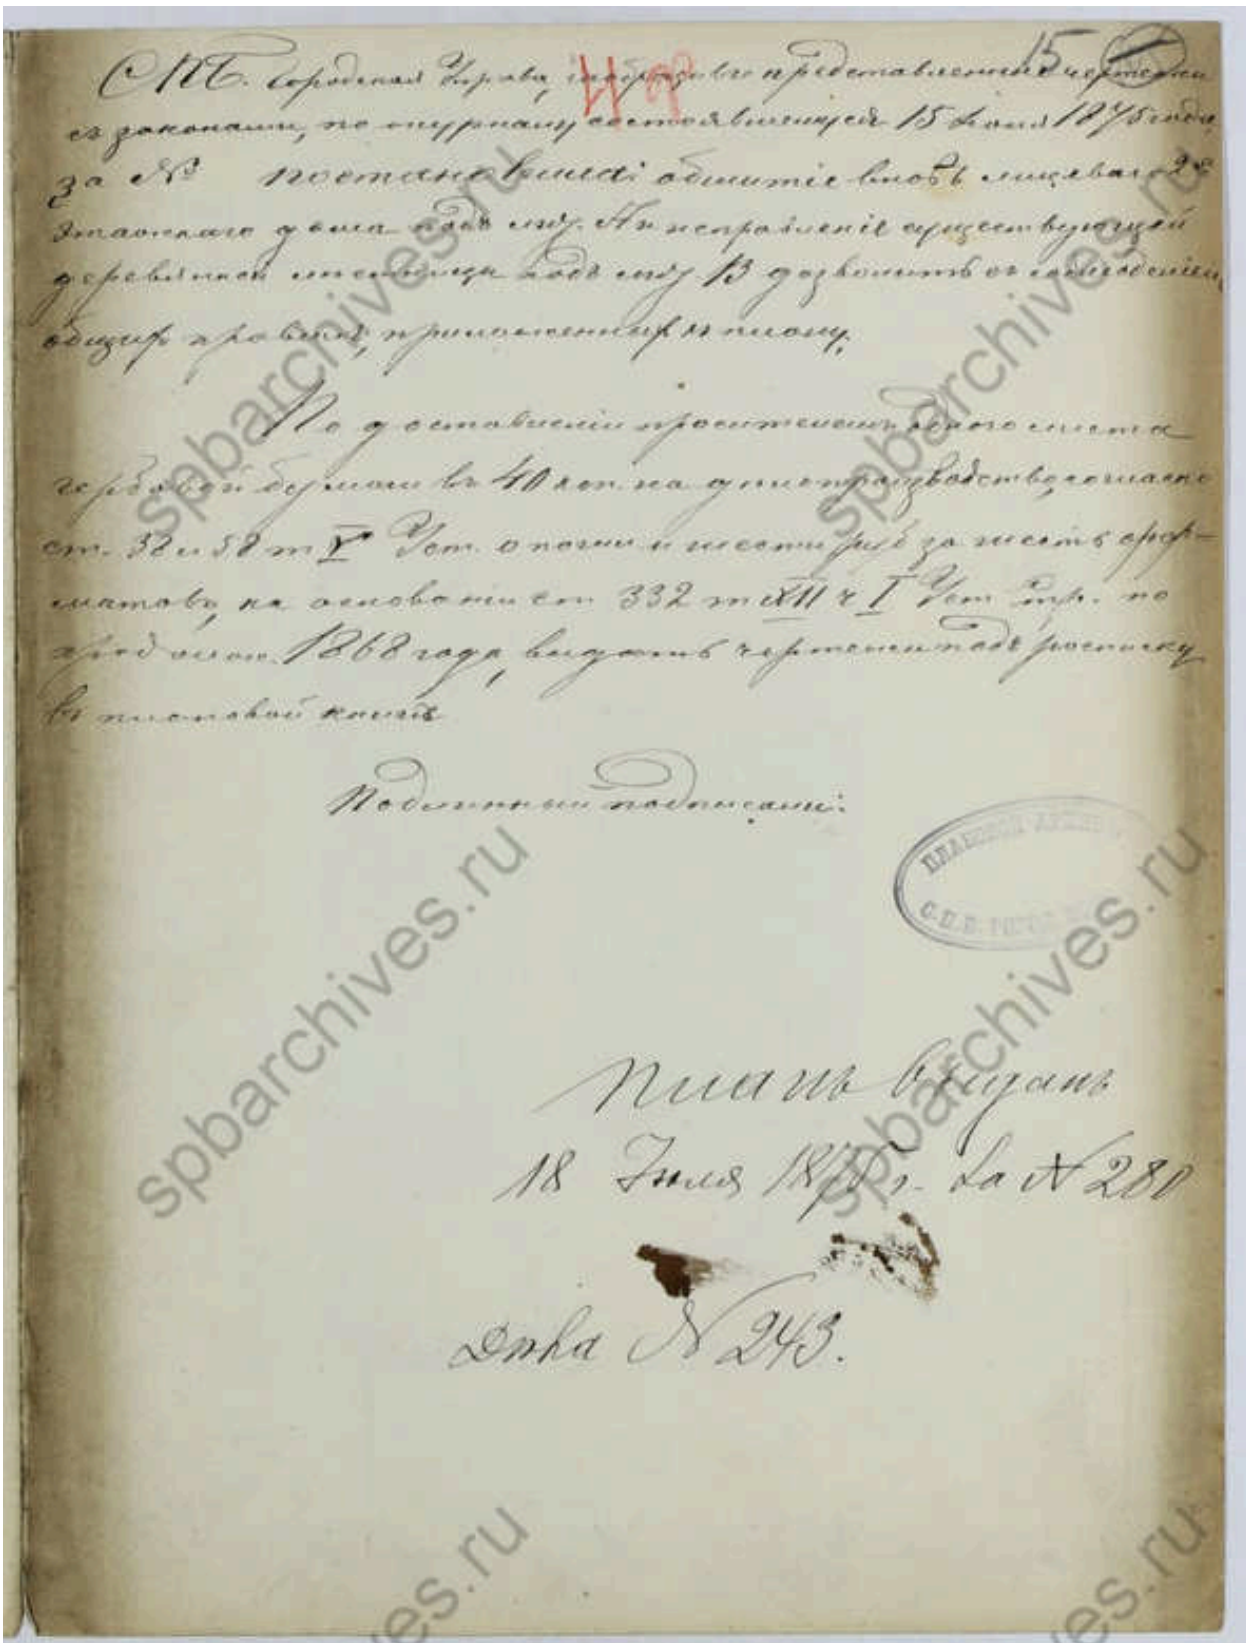 15
49
С.П.Б. Городская Управа, сообразивъ представленные чертежи
съ законами, по журналу состоявшемуся 15 Іюля 1875 года,
за № постановила: обшитіе вновь лицеваго 2хъ
этажнаго дома подъ лит. А и исправленіе существующей
деревянной лестницы подъ лит. В дозволить съ соблюденіемъ
общихъ правилъ, приложенныхъ къ плану.
По доставленіи просителемъ одного листа
гербовой бумаги въ 40 коп. на дѣлопроизводство, согласно
ст. 38 и 58 т V Уст. о пошл. и шести руб за шесть фор-
матовъ, на основаніи ст 332 т XII ч I Уст. стр. по
продолж. 1868 года, выдать чертежи подъ росписку
въ плановой книгѣ
Подлинный подписали:
ПЛАНОВОЙ АРХИВЪ
С.П.Б. ГОРОД.
Планъ выданъ
18 Іюля 1875 г. за № 280
№ 243.
spbarchives.ru
spbarchives.ru
spbarchives.ru
spbarchives.ru